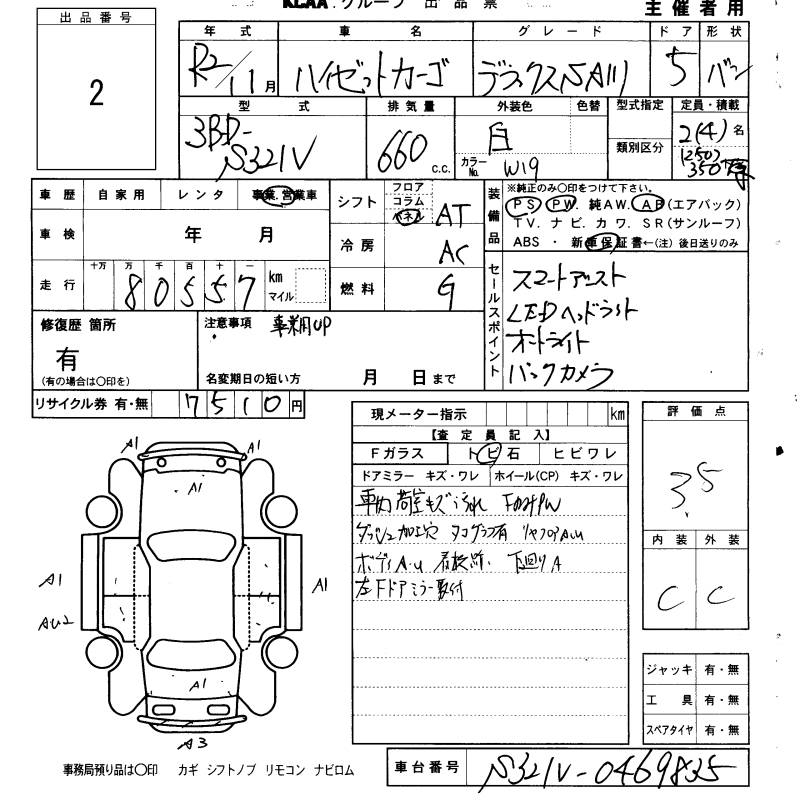 KCAA グループ 出品票
主催者用
出品番号
2
年式 車名 グレード ドア 形状
R2/11月 ハイゼットカーゴ デラックスSAIII 5 バン
型式 排気量 外装色 色替 型式指定 定員・積載
3BD-S321V 660 c.c. 白 カラーNo. W19 類別区分 2(4)名
350
車歴 自家用 レンタ 事業.営業車
車検 年 月
走行 十万 万 千 百 十 一 km マイル
80557
シフト フロア コラム パネル AT
冷房 AC
燃料 G
装備品
※純正のみ○印をつけて下さい。
PS PW. 純AW. AB(エアバック)
TV. ナビ. カワ. SR(サンルーフ)
ABS ・ 新車保証書←(注) 後日送りのみ
セールスポイント
スマートアシスト
LEDヘッドライト
オートライト
バックカメラ
修復歴 箇所
有
(有の場合は○印を)
注意事項 事業用UP
名変期日の短い方 月 日まで
リサイクル券 有・無 7510円
現メーター指示 km
【査定員記入】
Fガラス トビ石 ヒビワレ
ドアミラー キズ・ワレ ホイール(CP) キズ・ワレ
車内荷室キズ汚れ
ダッシュ加工穴 タコグラフ有 リヤフロアAU
ボディA.U 看板跡. 下回りA
左Fドアミラー取付
評価点
3.5
内装 外装
C C
ジャッキ 有・無
工具 有・無
スペアタイヤ 有・無
A1 A1
A1
A1 A1
AU2
A1
A3
事務局預り品は○印 カギ シフトノブ リモコン ナビロム
車台番号 S321V-0469835